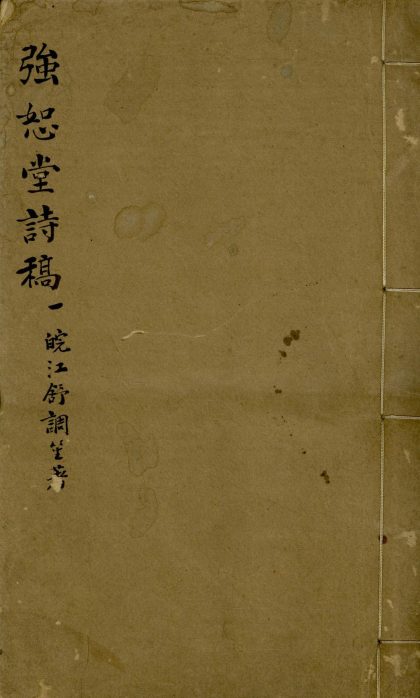 強恕堂詩稿一
皖江舒調笙著